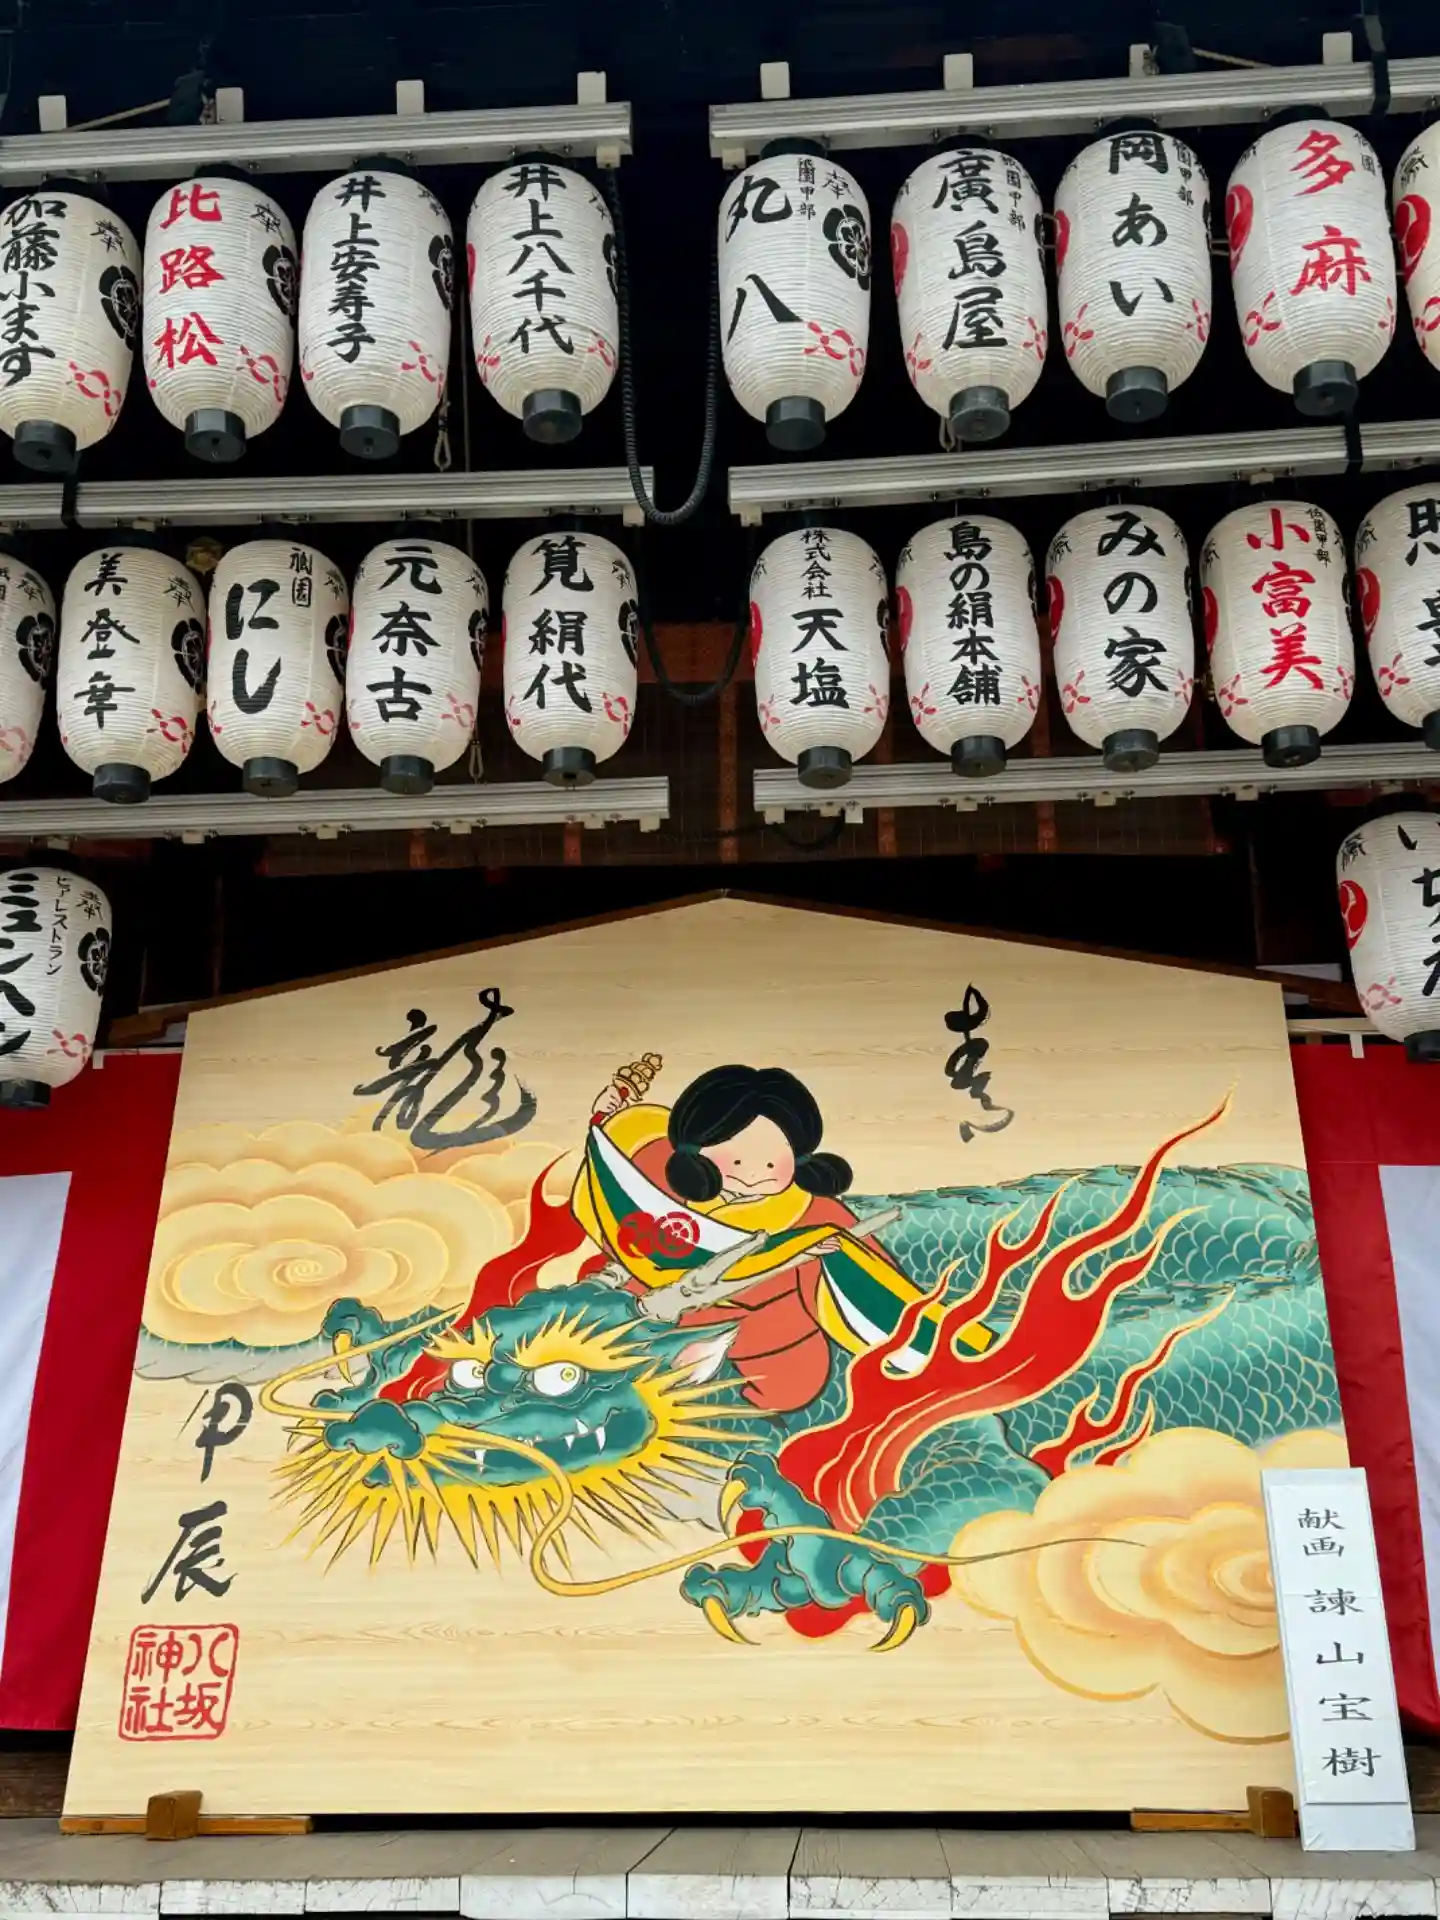 加藤小ます
奉
比路松
奉
井上安寿子
井上八千代
祇園甲部
奉
丸八
祇園甲部
廣島屋
祇園甲部
岡あい
多麻
美登幸
奉
祇園
にし
元奈古
奉
筧絹代
奉
株式会社
天塩
島の絹本舗
みの家
小富美
ビアレストラン
ミュンヘン
奉
青
龍
甲辰
八坂
神社
献画 諫山宝樹